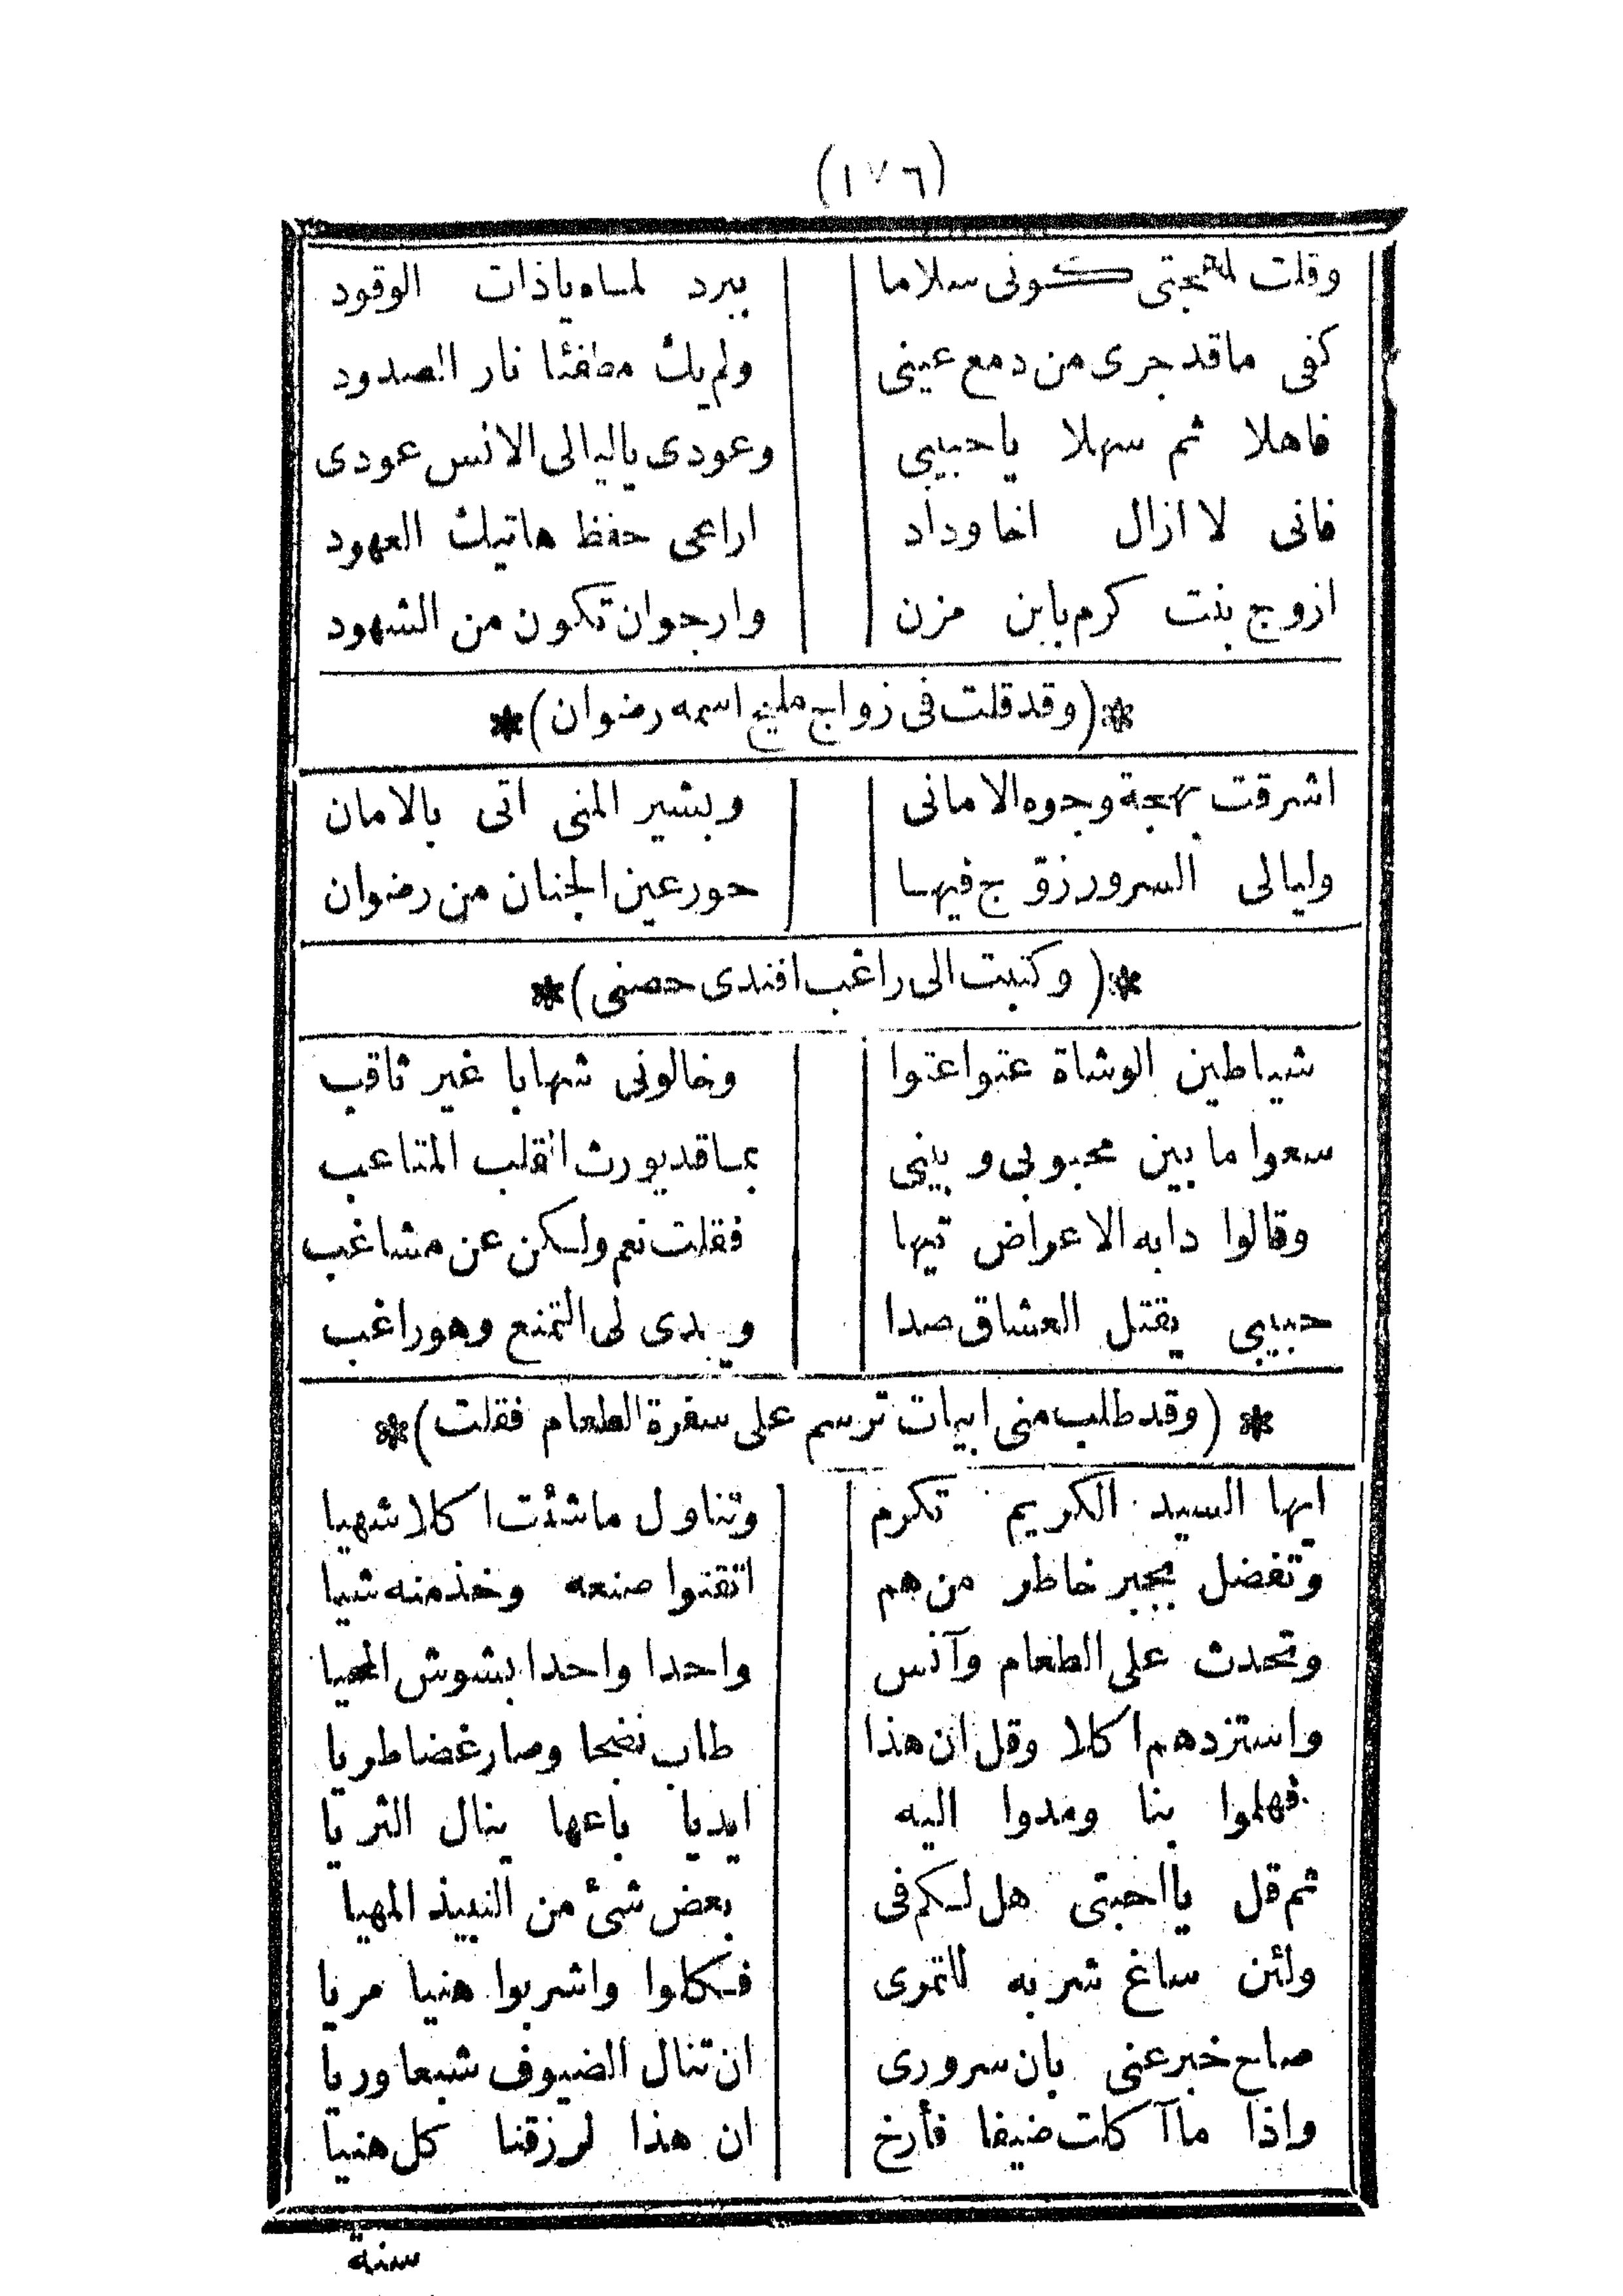 (١٧٦)
وقلت لمهجتى كونى سلاما ببرد لماه ياذات الوقود
كفى ماقد جرى من دمع عينى ولم يك مطفئا نار الصدود
فاهلا ثم سهلا ياحبيبى وعودى ياليالى الانس عودى
فانى لا ازال اخا وداد اراعى حفظ هاتيك العهود
ازوج بنت كرم بابن مزن وارجوان تكون من الشهود
*(وقد قلت فى زواج مليح اسمه رضوان)*
اشرقت بهجة وجوه الامانى وبشير المنى اتى بالامان
وليالى السرور زوّج فيها حور عين الجنان من رضوان
*(وكتبت الى راغب افندى حصنى)*
شياطين الوشاة عتوا عتوا وخالونى شهابا غير ثاقب
سعوا ما بين محبوبى وبينى بما قد يورث القلب المتاعب
وقالوا دابه الاعراض تيها فقلت نعم ولكن عن مشاغب
حبيبى يقتل العشاق صدا ويبدى لى التمنع وهو راغب
*(وقد طلب منى ابيات ترسم على سفرة الطعام فقلت)*
ايها السيد الكريم تكرم وتناول ماشئت اكلا شهيا
وتفضل بجبر خاطر من هم اتقنوا صنعه وخذ منه شيا
وتحدث على الطعام وآنس واحدا واحدا بشوش المحيا
واستزدهم اكلا وقل ان هذا طاب نضجا وصار غضا طريا
فهلموا بنا ومدوا اليه ايديا باعها ينال الثريا
ثم قل يا احبتى هل لكم فى بعض شئ من النبيذ المهيا
ولئن ساغ شربه للتمرى فكلوا واشربوا هنيا مريا
صاح خبر عنى بان سرورى ان تنال الضيوف شبعا وريا
واذا ما آكلت ضيفا فأرخ ان هذا لرزقنا كل هنيا
سنة